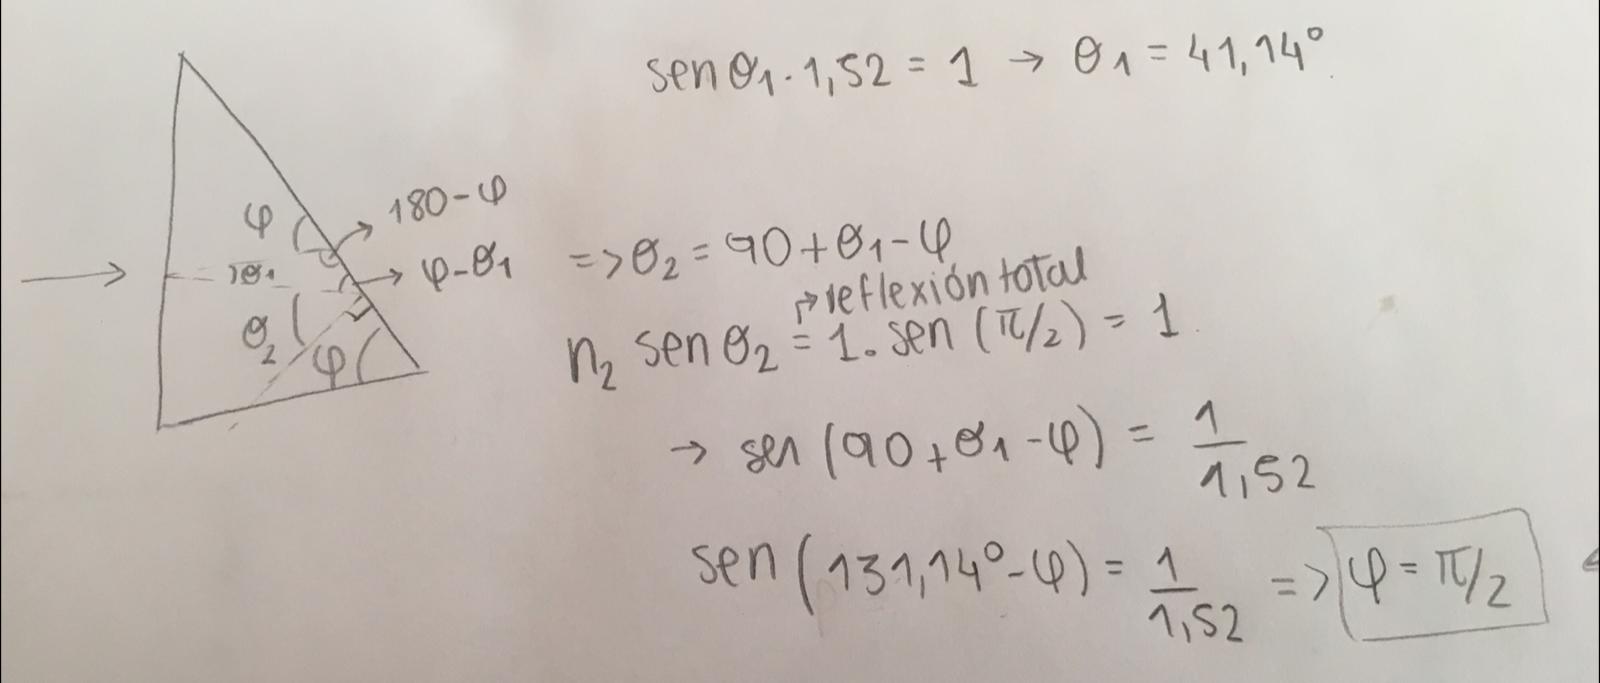 sen θ1 · 1,52 = 1 → θ1 = 41,14°
φ
180-φ
θ1
φ-θ1
=> θ2 = 90+θ1-φ
reflexión total
θ2
φ
n2 sen θ2 = 1. sen (π/2) = 1
→ sen (90+θ1-φ) = 1/1,52
sen (131,14°-φ) = 1/1,52 => φ = π/2